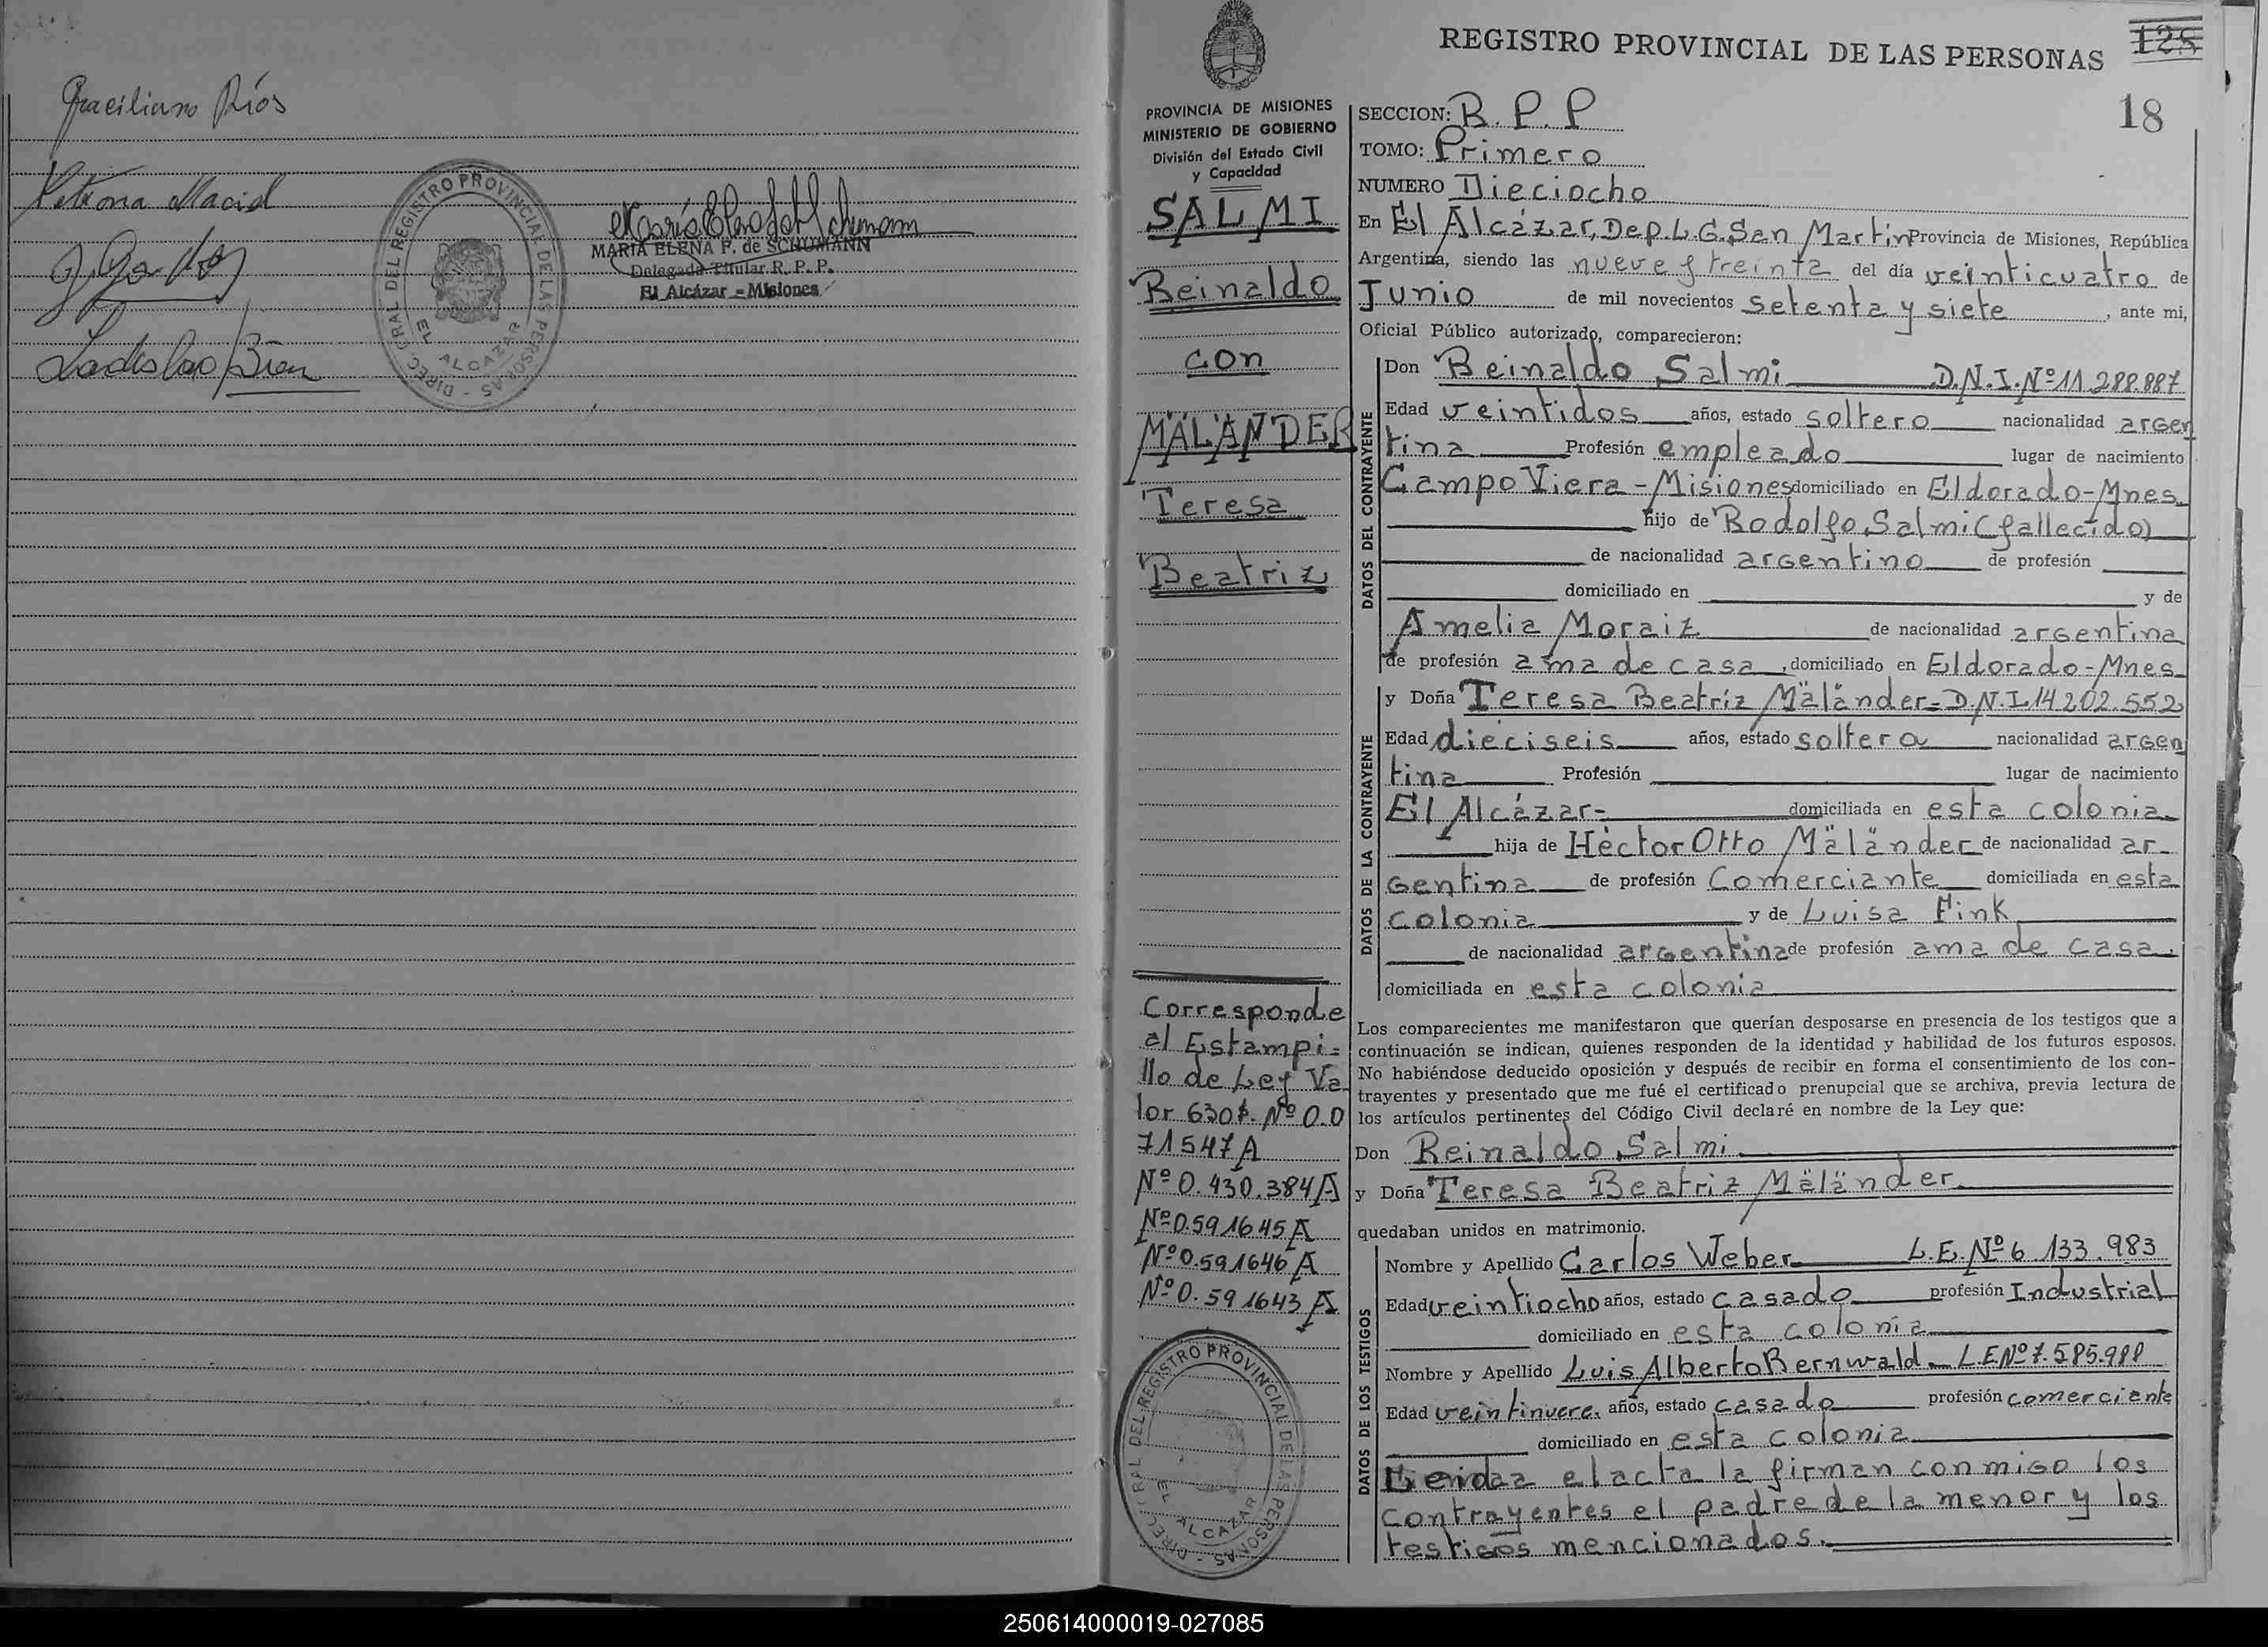 Graciliano Ríos
Petrona Maciel
Ladislao Bien
DIREC. GRAL DEL REGISTRO PROVINCIAL DE LAS PERSONAS -
EL ALCAZAR
MARIA ELENA P. de SCHUMANN
Delegada Titular R. P. P.
El Alcázar - Misiones
REGISTRO PROVINCIAL DE LAS PERSONAS
128
18
PROVINCIA DE MISIONES
MINISTERIO DE GOBIERNO
División del Estado Civil
y Capacidad
SALMI
Reinaldo
con
MÄLÄNDER
Teresa
Beatriz
Corresponde
al Estampi=
llo de Ley Va
lor 630$. Nº 0.0
71547A
Nº 0.430.384A
Nº 0.591645A
Nº 0.591646A
Nº 0.591643A
DIREC. GRAL DEL REGISTRO PROVINCIAL DE LAS PERSONAS -
EL ALCAZAR
SECCION: R. P. P
TOMO: Primero
NUMERO Dieciocho
En El Alcázar, Dep. L.G. San Martín Provincia de Misiones, República
Argentina, siendo las nueve y treinta del día veinticuatro de
Junio de mil novecientos setenta y siete, ante mi,
Oficial Público autorizado, comparecieron:
DATOS DEL CONTRAYENTE
Don Reinaldo Salmi D.N.I. Nº 11.288.887
Edad veintidos años, estado soltero nacionalidad argen
tina Profesión empleado lugar de nacimiento
Campo Viera - Misiones domiciliado en Eldorado-Mnes.
hijo de Rodolfo Salmi (fallecido)
de nacionalidad argentino de profesión
domiciliado en y de
Amelia Moraiz de nacionalidad argentina
de profesión ama de casa, domiciliado en Eldorado-Mnes
DATOS DE LA CONTRAYENTE
y Doña Teresa Beatriz Mäländer= D.N.I. 14.202.552
Edad dieciseis años, estado soltera nacionalidad argen
tina Profesión lugar de nacimiento
El Alcázar= domiciliada en esta colonia
hija de Héctor Otto Mäländer de nacionalidad ar-
gentina de profesión Comerciante domiciliada en esta
colonia y de Luisa Fink
de nacionalidad argentina de profesión ama de casa,
domiciliada en esta colonia
Los comparecientes me manifestaron que querían desposarse en presencia de los testigos que a
continuación se indican, quienes responden de la identidad y habilidad de los futuros esposos.
No habiéndose deducido oposición y después de recibir en forma el consentimiento de los con-
trayentes y presentado que me fué el certificado prenupcial que se archiva, previa lectura de
los artículos pertinentes del Código Civil declaré en nombre de la Ley que:
Don Reinaldo Salmi
y Doña Teresa Beatriz Mäländer
quedaban unidos en matrimonio.
DATOS DE LOS TESTIGOS
Nombre y Apellido Carlos Weber L.E. Nº 6.133.983
Edad veintiocho años, estado casado profesión Industrial
domiciliado en esta colonia
Nombre y Apellido Luis Alberto Bernwald L.E. Nº 7.585.988
Edad veintinueve, años, estado casado profesión comerciante
domiciliado en esta colonia
Leidaa el acta la firman conmigo los
contrayentes el padre de la menor y los
testigos mencionados.
250614000019-027085